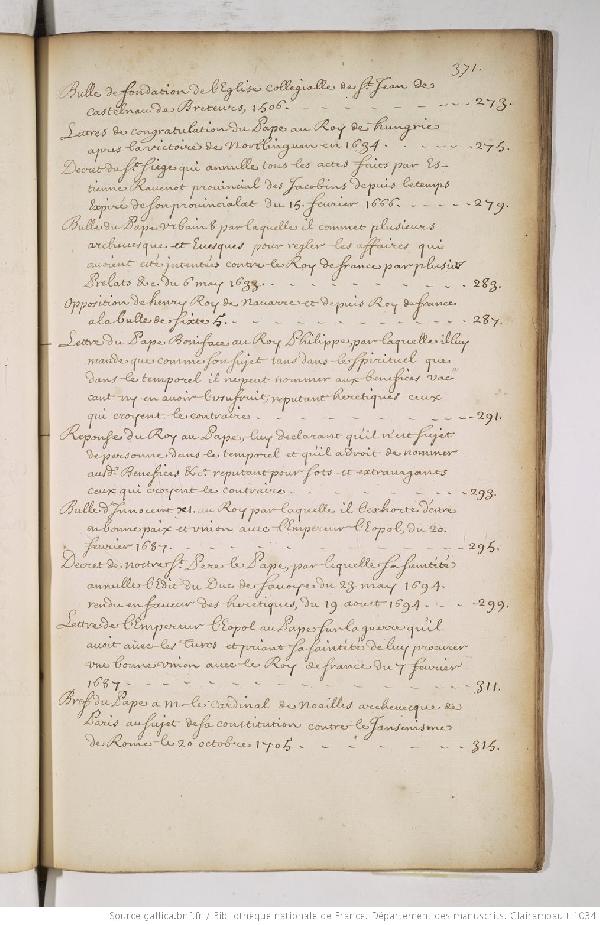 371.
Bulle de fondation de l'Eglise collegialle de St. Jean de
Castelnau de Breteurs, 1506. 273.
Lettres de congratulation du Pape au Roy de hungrie
apres la victoire de Nortlinguen en 1634. 275.
Decret du St. Siege qui annulle tous les actes faits par Es-
tienne Ravenot provincial des Jacobins depuis le temps
Expiré de son provincialat du 15. fevrier 1666. 279.
Bulle du Pape Urbain 8 par laquelle il commet plusieurs
archevesque et Evesques pour regler les affaires qui
avoient eté intentées contre le Roy de france par plusieurs
Prelats &c. du 6 may 1633. 283.
Opposition de henry Roy de Navarre et depuis Roy de france
a la bulle de Sixte 5. 287.
Lettre du Pape Boniface au Roy Philippe, par laquelle il luy
mande que comme son sujet tans dans le spirituel que
dans le temporel il ne peut nommer aux benefices vac-
cant ny en avoir l'usufruit, reputant heretiques ceux
qui croyent le contraire. 291.
Reponse du Roy au Pape, luy declarant qu'il n'est sujet
de personne dans le temporel et qu'il a droit de nommer
ausd. Benefices &c. reputant pour sots et extravagants
ceux qui croyent le contraire. 293.
Bulle d'Innocent XI. au Roy par laquelle il l'exhorte d'etre
en bonne paix et union avec l'Empereur lEopol, du 20
fevrier 1687. 295.
Decret de nostre St. Pere le Pape, par laquelle sa sainteté
annulle l'Edit du Duc de Savoye du 23 may 1694
rendu en faveur des heretiques, du 19 aoust 1694. 299.
Lettre de l'Empereur lEopol au Pape sur la guerre qu'il
avoit avec les Turcs et priant sa sainteté de luy procurer
une bonne union avec le Roy de france du 7 fevrier
1687 311.
Bref du Pape a M. le Cardinal de Noailles archevecque de
Paris au sujet de sa constitution contre le Jansenisme
de Rome le 20 octobre 1705. 315.
Source gallica.bnf.fr / Bibliothèque nationale de France. Département des manuscrits. Clairambault 1034